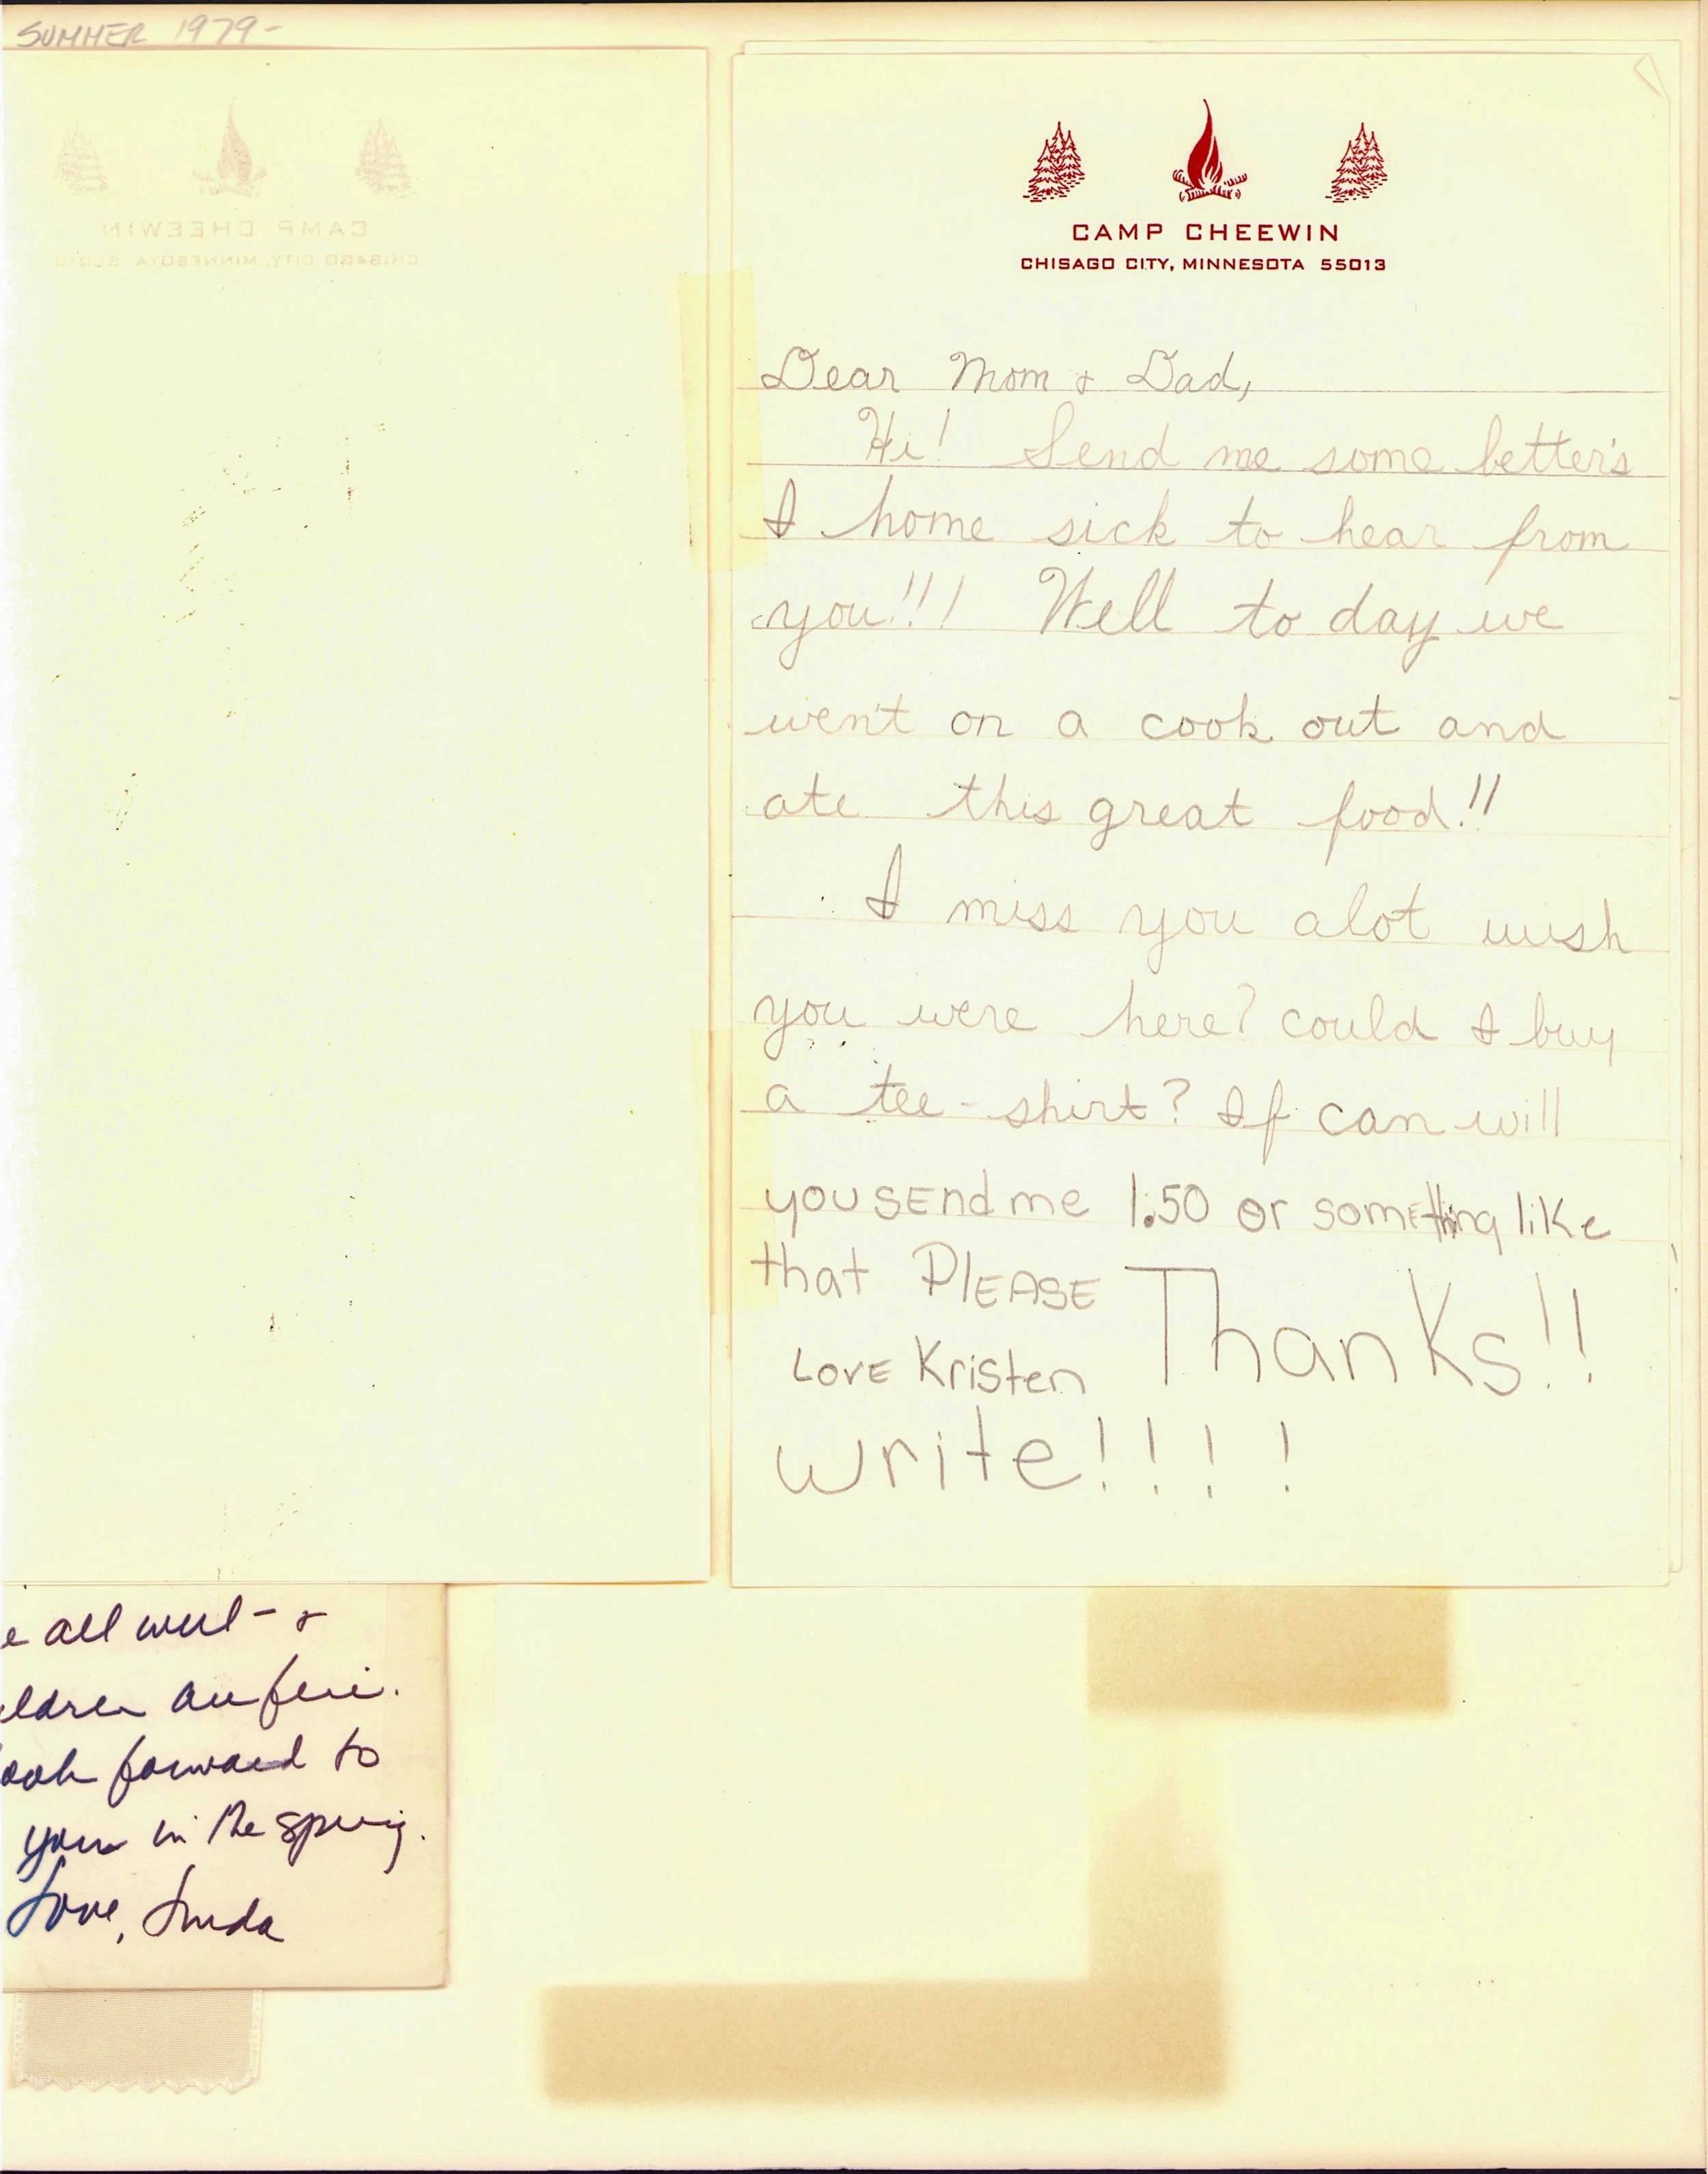 SUMMER 1979-
CAMP CHEEWIN
CHISAGO CITY, MINNESOTA 55013
Dear Mom & Dad,
Hi! Send me some letter's
I home sick to hear from
you!!! Well to day we
went on a cook out and
ate this great food!!
I miss you alot wish
you were here? could I buy
a tee-shirt? If can will
you SEnd me 1.50 or somEthing like
that PlEASE
Thanks!!
LovE Kristen
write!!!!
e all well - &
ldren are fine.
ook forward to
your in the spring.
Love, Linda